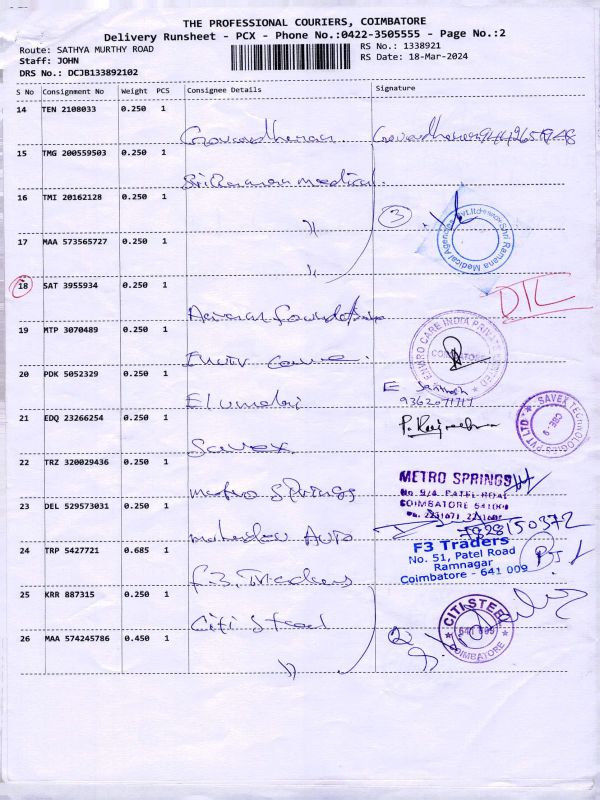 THE PROFESSIONAL COURIERS, COIMBATORE
Delivery Runsheet - PCX - Phone No.:0422-3505555 - Page No.:2
Route: SATHYA MURTHY ROAD
RS No.: 1338921
Staff: JOHN
RS Date: 18-Mar-2024
DRS No.: DCJB133892102
S No Consignment No Weight PCS Consignee Details Signature
14 TEN 2108033 0.250 1
Govardhanan Govardhanan
15 TMG 200559503 0.250 1
Sri Ramana medical
16 TMI 20162128 0.250 1
"
3
Shri Ramana Medical Agencies Pvt.ltd
17 MAA 573565727 0.250 1
"
18 SAT 3955934 0.250 1
DTL
19 MTP 3070489 0.250 1
ENVIRO CARE INDIA PRIVATE LIMITED
COIMBATORE
20 PDK 5052329 0.250 1
Elumalai
E Santhosh
9362071717
21 EDQ 23266254 0.250 1
Savex
SAVEX TECHNOLOGIES PVT LTD
CBE-9
22 TRZ 320029436 0.250 1
metro Springs
METRO SPRINGS
No 9/A PATEL ROAD
COIMBATORE 641009
23 DEL 529573031 0.250 1
mahadev Auto
7828150372
24 TRP 5427721 0.685 1
F.3. Traders
F3 Traders
No. 51, Patel Road
Ramnagar
Coimbatore - 641 009
25 KRR 887315 0.250 1
Citi Steel
CITI STEEL
641 009
COIMBATORE
26 MAA 574245786 0.450 1
"
2